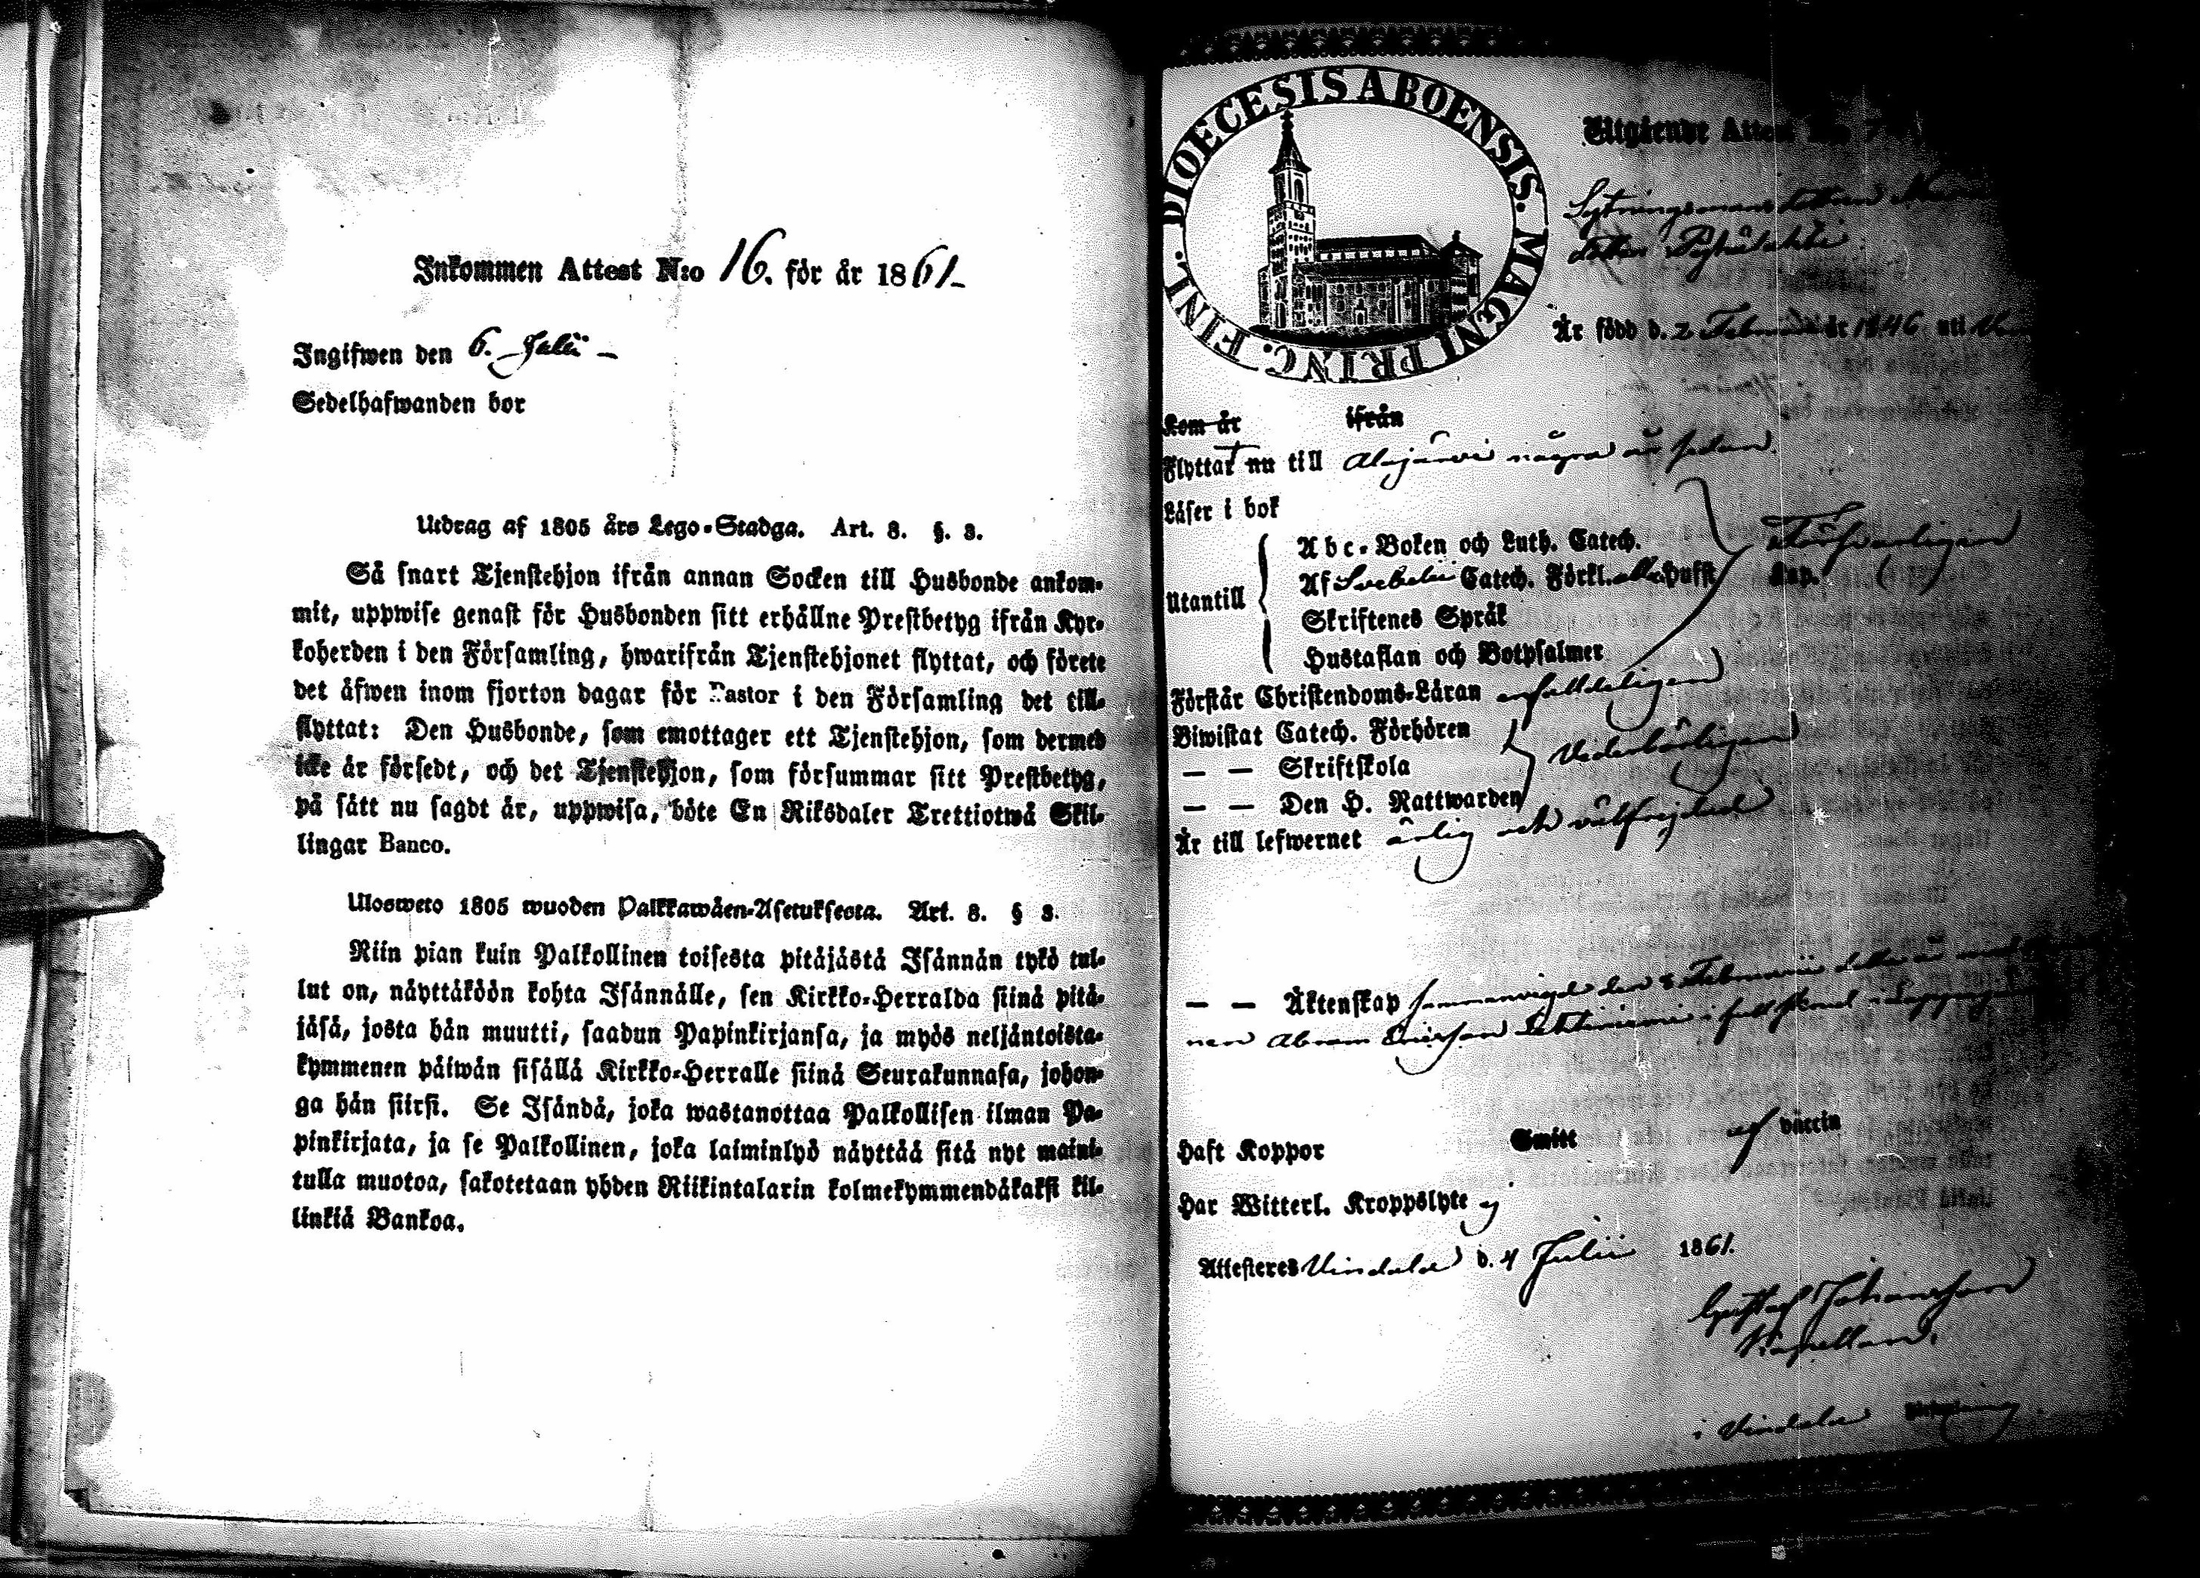 Inkommen Attest N:o 16. för år 1861-
Ingifwen den 6. Julii -
Sedelhafwanden bor
Utdrag af 1805 års Lego-Stadga. Art. 8. §. 3.
Så snart Tjenstehjon ifrån annan Socken till Husbonde ankom-
mit, uppwise genast för Husbonden sitt erhållne Prestbetyg ifrån Kyr-
koherden i den Församling, hwarifrån Tjenstehjonet flyttat, och förete
det äfwen inom fjorton dagar för Pastor i den Församling det till-
flyttat: Den Husbonde, som emottager ett Tjenstehjon, som dermed
icke är försedt, och det Tjenstehjon, som försummar sitt Prestbetyg,
på sätt nu sagdt är, uppwisa, böte En Riksdaler Trettiotwå Skil-
lingar Banco.
Ulosweto 1805 wuoden Palkkawäen-Asetuksesta. Art. 8. § 3.
Niin pian kuin Palkollinen toisesta pitäjästä Isännän tykö tul-
lut on, näyttäköön kohta Isännälle, sen Kirkko-Herralda siinä pitä-
jäsä, josta hän muutti, saadun Papinkirjansa, ja myös neljäntoista-
kymmenen päiwän sisällä Kirkko-Herralle siinä Seurakunnasa, johon-
ga hän siirsi. Se Isändä, joka wastanottaa Palkollisen ilman Pa-
pinkirjata, ja se Palkollinen, joka laiminlyö näyttää sitä nyt maini-
tulla muotoa, sakotetaan yhden Riikintalarin kolmekymmendäkaksi kil-
linkiä Bankoa.
DIOECESIS ABOENSIS. MAGNI PRINC. FINL.
Utgående Attest N:o
Är född d. 2 Februarii år 1846 uti
Kom år ifrån
Flyttat nu till Alajärvi några år sedan.
Läser i bok
Utantill
Abc-Boken och Luth. Catech.
Af Svebelii Catech. Förkl. alla Hufst. Kap.
Försvarligen
Skriftenes Språk
Hustaflan och Botpsalmer
Förstår Christendoms-Läran enfaldeligen
Biwistat Catech. Förhören
— — Skriftskola
Vederbörligen
— — Den H. Nattwarden
Är till lefwernet ärlig och välfrejdad
— — Äktenskap sammanvigd den 8 Februarii detta år med
Haft Koppor Smitt af vaccin
Har Witterl. Kroppslyte ej
Attesteres Vindala d. 4 Julii 1861.
Gustaf Johansson
Kapellan.
i Vindala